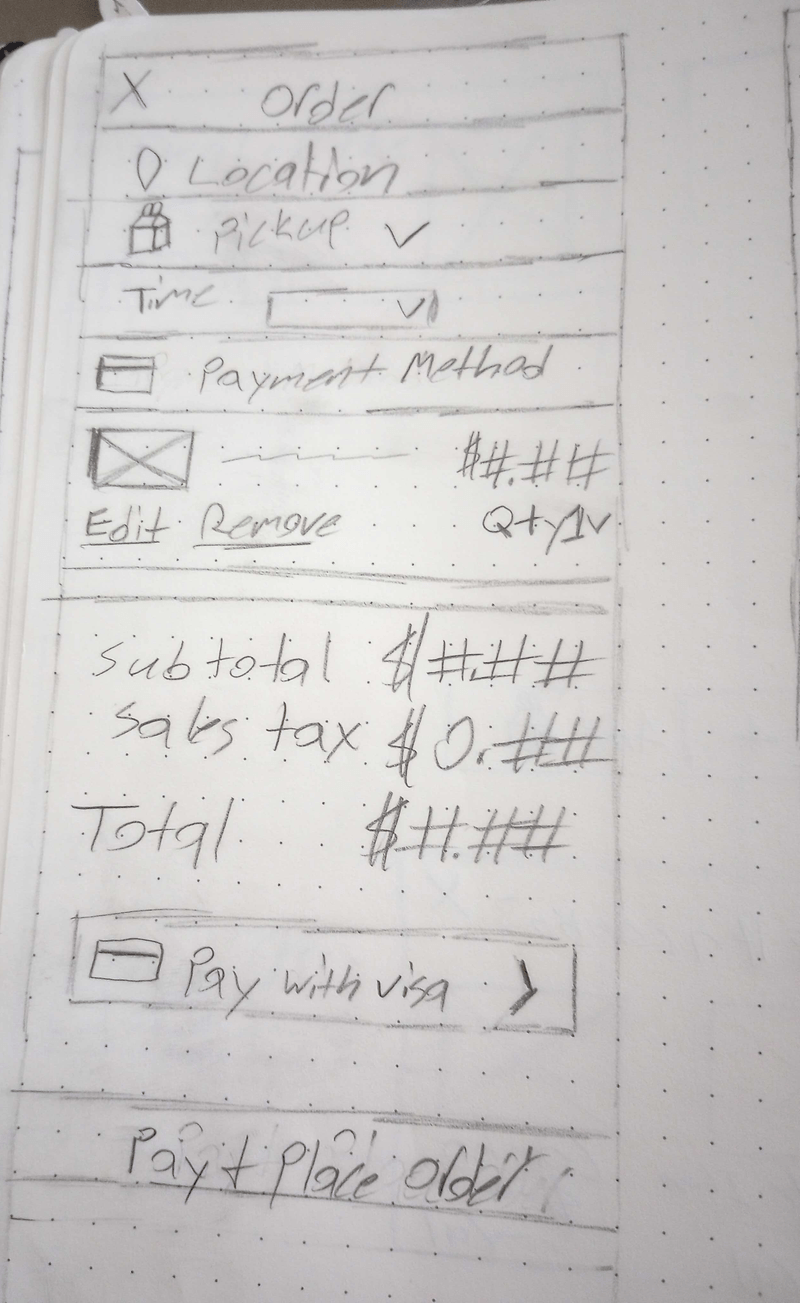 X Order
Location
Pickup
Time
Payment Method
$#.##
Edit Remove Qty 1
Subtotal $#.##
Sales tax $0.##
Total $#.##
Pay with visa
Pay + Place order